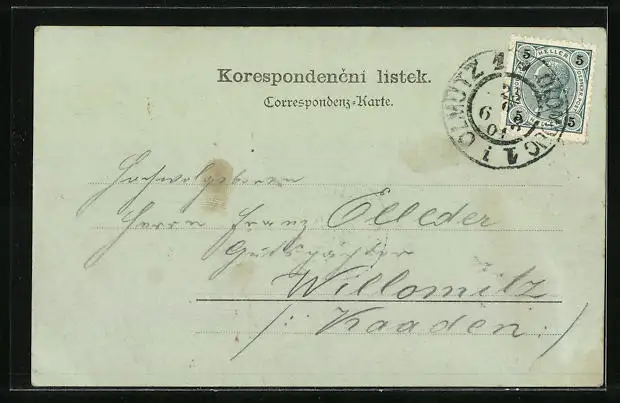 Korespondenční listek.
Correspondenz-Karte.
5 HELLER 5
5 5
OLMÜTZ 1 OLOMOUC 1
6
01
Hochwolgeboren
Herrn Franz Elleder
Gutspächter
Willomitz
/: Kaaden :/